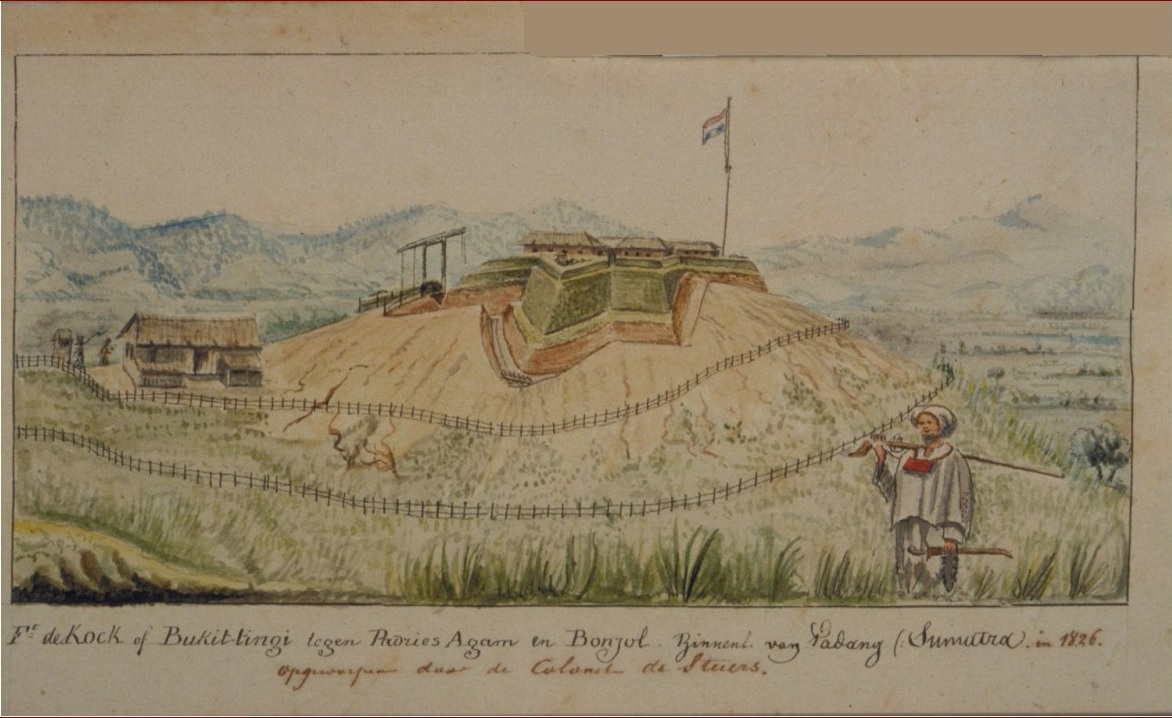 Ft. de Kock of Bukit-tingi tegen Padries Agam en Bonjol. Binnenl. van Padang (: Sumatra. in 1826.
opgeworpen door de Colonel de Stuers.